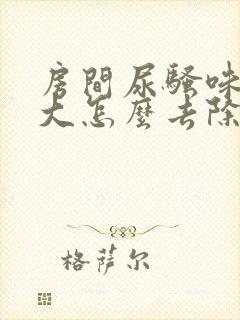 房間尿騷味
大怎麼去除
格萨尔